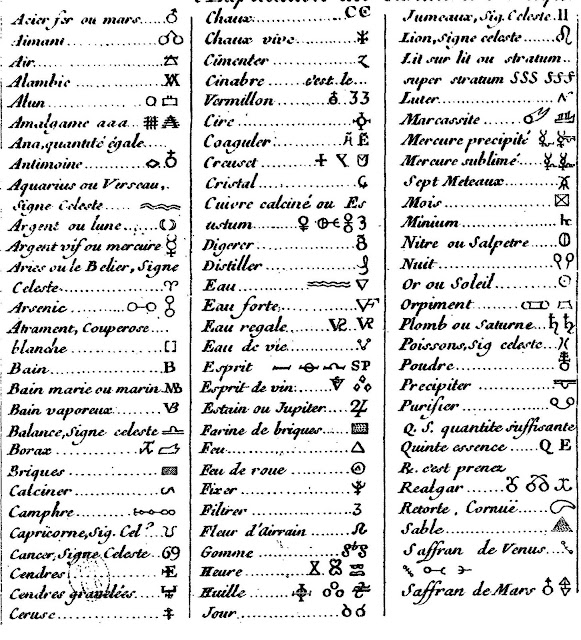 Acier fer ou mars
Aimant
Air
Alambic
Alun
Amalgame aaa
Ana, quantité égale
Antimoine
Aquarius ou Verseau,
Signe Celeste
Argent ou lune
Argent vif ou mercure
Aries ou le Belier, Signe
Celeste
Arsenic
Atrament, Couperose
blanche
Bain B
Bain marie ou marin MB
Bain vaporeux VB
Balance, Signe celeste
Borax
Briques
Calciner
Camphre
Capricorne, Sig. Cel?
Cancer, Signe Celeste 69
Cendres E
Cendres gravelées
Ceruse
Chaux CC
Chaux vive
Cimenter
Cinabre c'est le
Vermillon 33
Cire
Coaguler
Creuset
Cristal
Cuivre calciné ou Es
ustum
Digerer
Distiller
Eau
Eau forte
Eau regale
Eau de vie
Esprit SP
Esprit de vin
Estain ou Jupiter
Farine de briques
Feu
Feu de roue
Fixer
Filtrer 3
Fleur d'airain
Gomme
Heure
Huille
Jour
Jumeaux, Sig. Celeste II
Lion, signe celeste
Lit sur lit ou stratum
super stratum SSS SSS
Luter
Marcassite
Mercure precipité
Mercure sublimé
Sept Meteaux
Mois
Minium
Nitre ou Salpetre
Nuit
Or ou Soleil
Orpiment
Plomb ou Saturne
Poissons, Sig celeste
Poudre
Precipiter
Purifier
Q. S. quantite suffisante
Quinte essence Q E
R. c'est prenez
Realgar
Retorte, Cornue
Sable
Saffran de Venus
Saffran de Mars